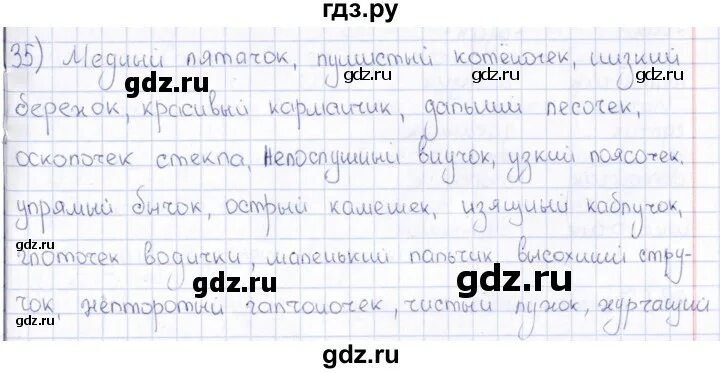 гдз.ру
35) Медный пятачок, пушистый котёночек, низкий
бережок, красивый карманчик, дальний песочек,
осколочек стекла, непослушный внучок, узкий поясочек,
упрямый бычок, острый камешек, изящный каблучок,
глоточек водички, маленький пальчик, высохший стру-
чок, желторотый галчоночек, чистый лужок, журчащий
gdz.ru
gdz.ru
gdz.ru
gdz.ru
gdz.ru
gdz.ru
gdz.ru
gdz.ru
gdz.ru
gdz.ru
gdz.ru